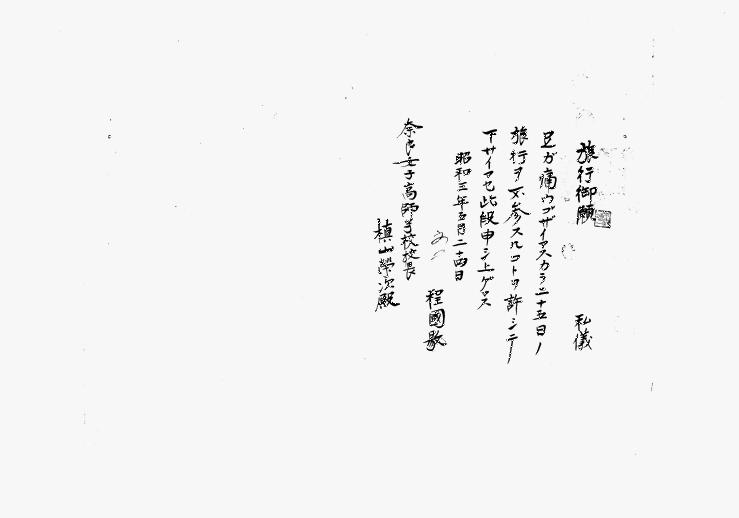 旅行御願
私儀
足ガ痛ウゴザイマスカラ二十五日ノ
旅行ヲ不参スルコトヲ許シニナ
下サイマセ此段申シ上ゲマス
昭和三年五月二十四日
程國
奈良女子高師学校校長
槙山榮次殿